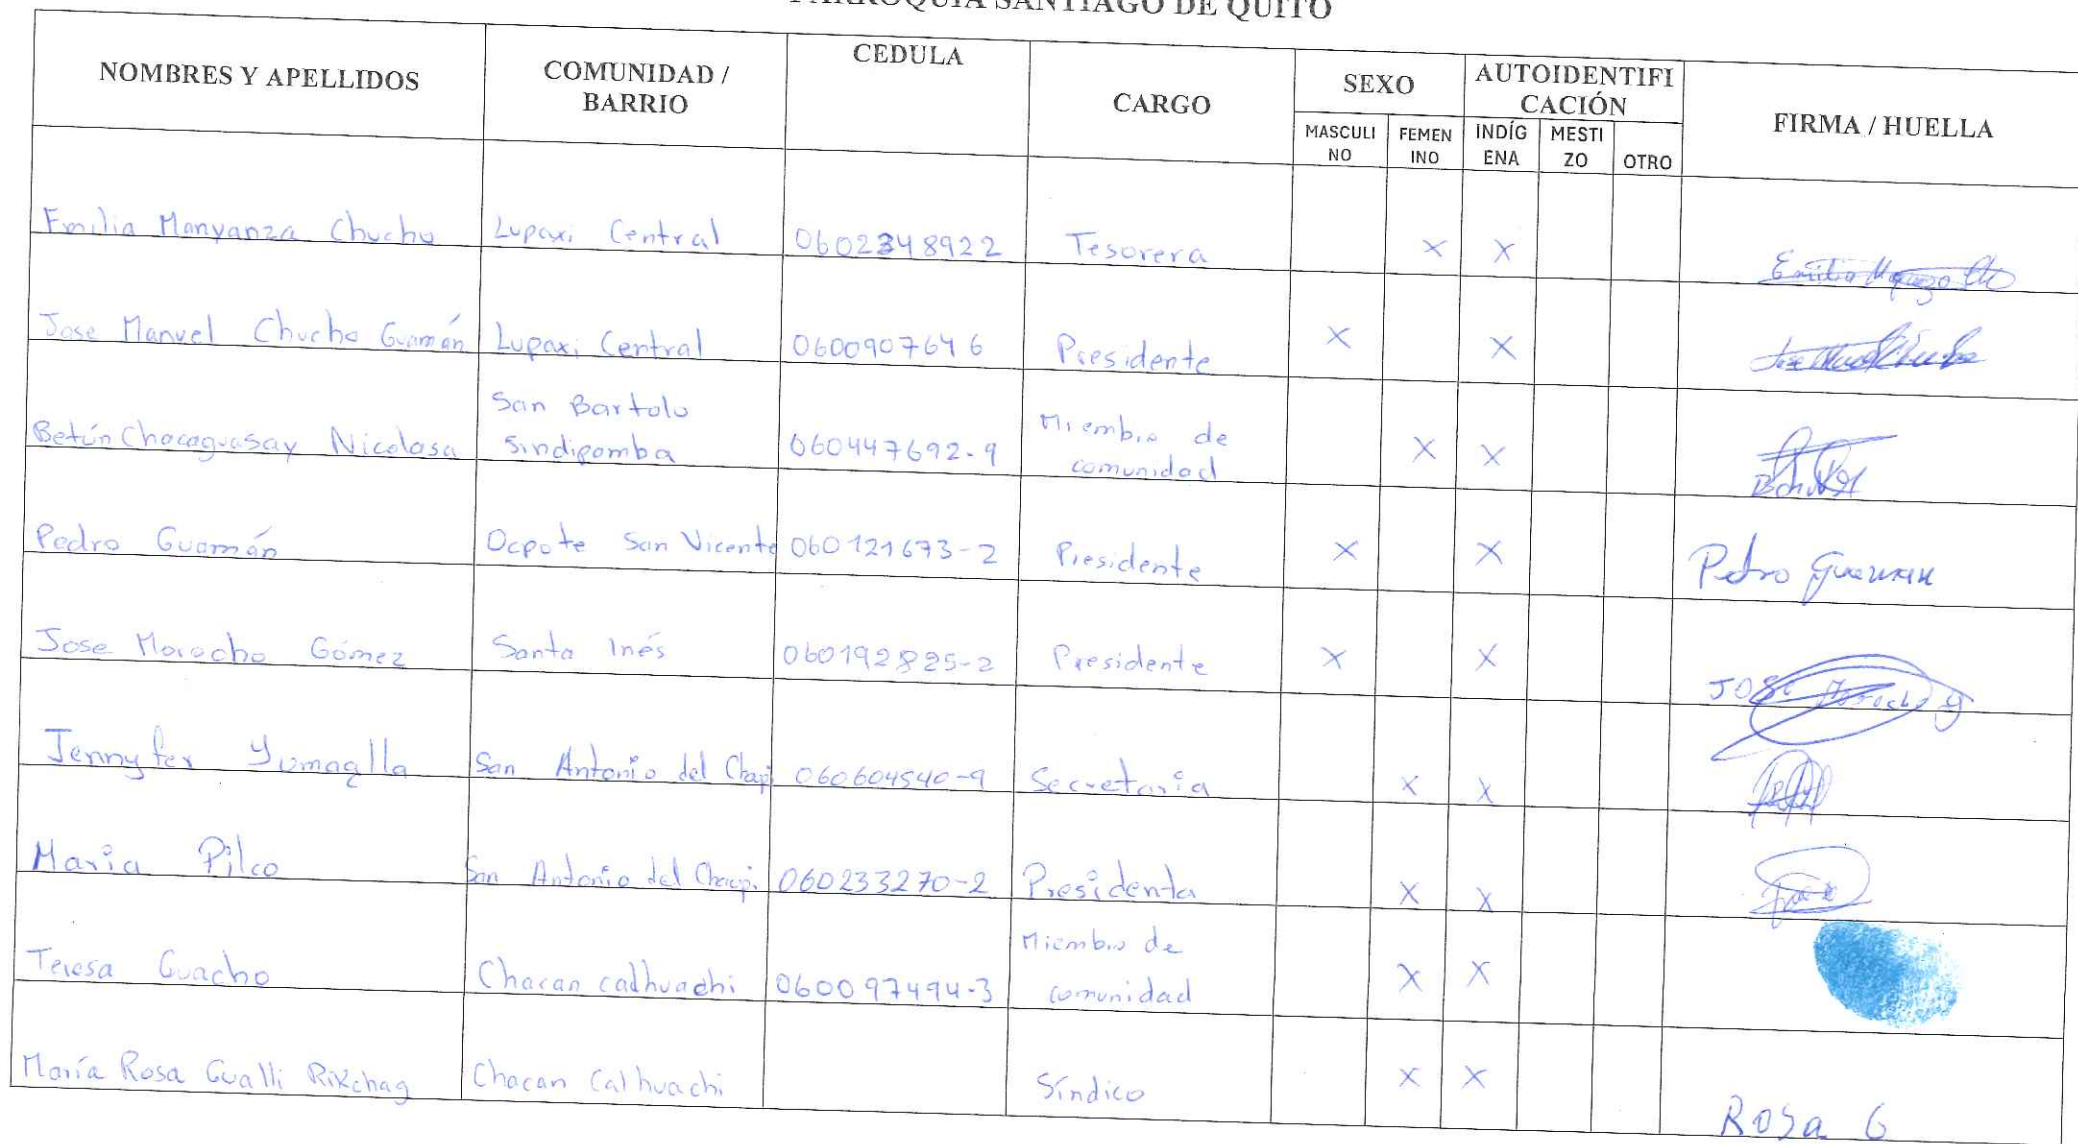 PARROQUIA SANTIAGO DE QUITO
NOMBRES Y APELLIDOS COMUNIDAD / BARRIO CEDULA CARGO SEXO AUTOIDENTIFICACIÓN FIRMA / HUELLA
MASCULINO FEMENINO INDÍGENA MESTIZO OTRO
Emilia Manyanza Chucho Lupaxi Central 0602348922 Tesorera X X
Jose Manuel Chucho Guamán Lupaxi Central 0600907646 Presidente X X
Betún Chocaguasay Nicolasa San Bartolo Sindipamba 060447692-9 Miembro de comunidad X X
Pedro Guamán Ocpote San Vicente 060121673-2 Presidente X X Pedro Guaman
Jose Morocho Gómez Santa Inés 060192825-2 Presidente X X JOSE Morocho G
Jennyfer Yumaglla San Antonio del Chapi 060604540-9 Secretaria X X
Maria Pilco San Antonio del Chaupi 060233270-2 Presidenta X X
Teresa Guacho Chacan calhuachi 060097494-3 Miembro de comunidad X X
María Rosa Gualli Rikchag Chacan Calhuachi Síndico X X Rosa G